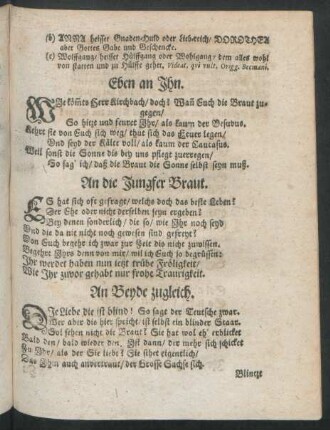 (b) ANNA heisset Gnaden-Huld oder Liebereich/ DOROTHEA
aber Gottes Gabe und Geschencke.
(c) Wolffgang/ heisset Hülffgang oder Wohlgang/ dem alles wohl
von statten und zu Hülffe gehet, Videat, qvi vult. Origg. Germani.
Eben an Ihn.
Wie kömts Herr Kirchbach/ doch? Wañ Euch die Braut zu-
gegen/
So hitzt und feuret Ihr/ als kaum der Vesuvus.
Kehrt sie von Euch sich weg/ thut sich das Feuer legen/
Und seyd der Kälte voll/ als kaum der Caucasus.
Weil sonst die Sonne diß bey uns pflegt zuerregen/
So sag' ich/ daß die Braut die Sonne selbst seyn muß.
An die Jungfer Braut.
Es hat sich oft gefragt/ welchs doch das beste Leben?
Der Ehe oder nicht derselben seyn ergeben?
Bey denen sonderlich/ die so/ wie Ihr noch seyd
Und die da mit nicht noch gewesen sind gefreyt?
Von Euch begehr ich zwar zur Zeit diß nicht zuwissen.
Begehrt Ihrs denn von mir/ wil ich Euch so begrüssen:
Ihr werdet haben nun jetzt frühe Frölichkeit/
Wie Ihr zuvor gehabt nur frohe Traurigkeit.
An Beyde zugleich.
Die Liebe die ist blind! So sagt der Teutsche zwar.
Wer aber diß hier spricht/ ist selbst ein blinder Staar.
Sol sehen nicht die Braut? Sie hat wol eh' erblicket
Bald den/ bald wieder den. Ist dann/ der mehr sich schicket
Zu Ihr/ als der Sie liebt? Sie sihet eigentlich/
Das Ihm auch anvertraut/ der Grosse Sachse sich.
Blintzt